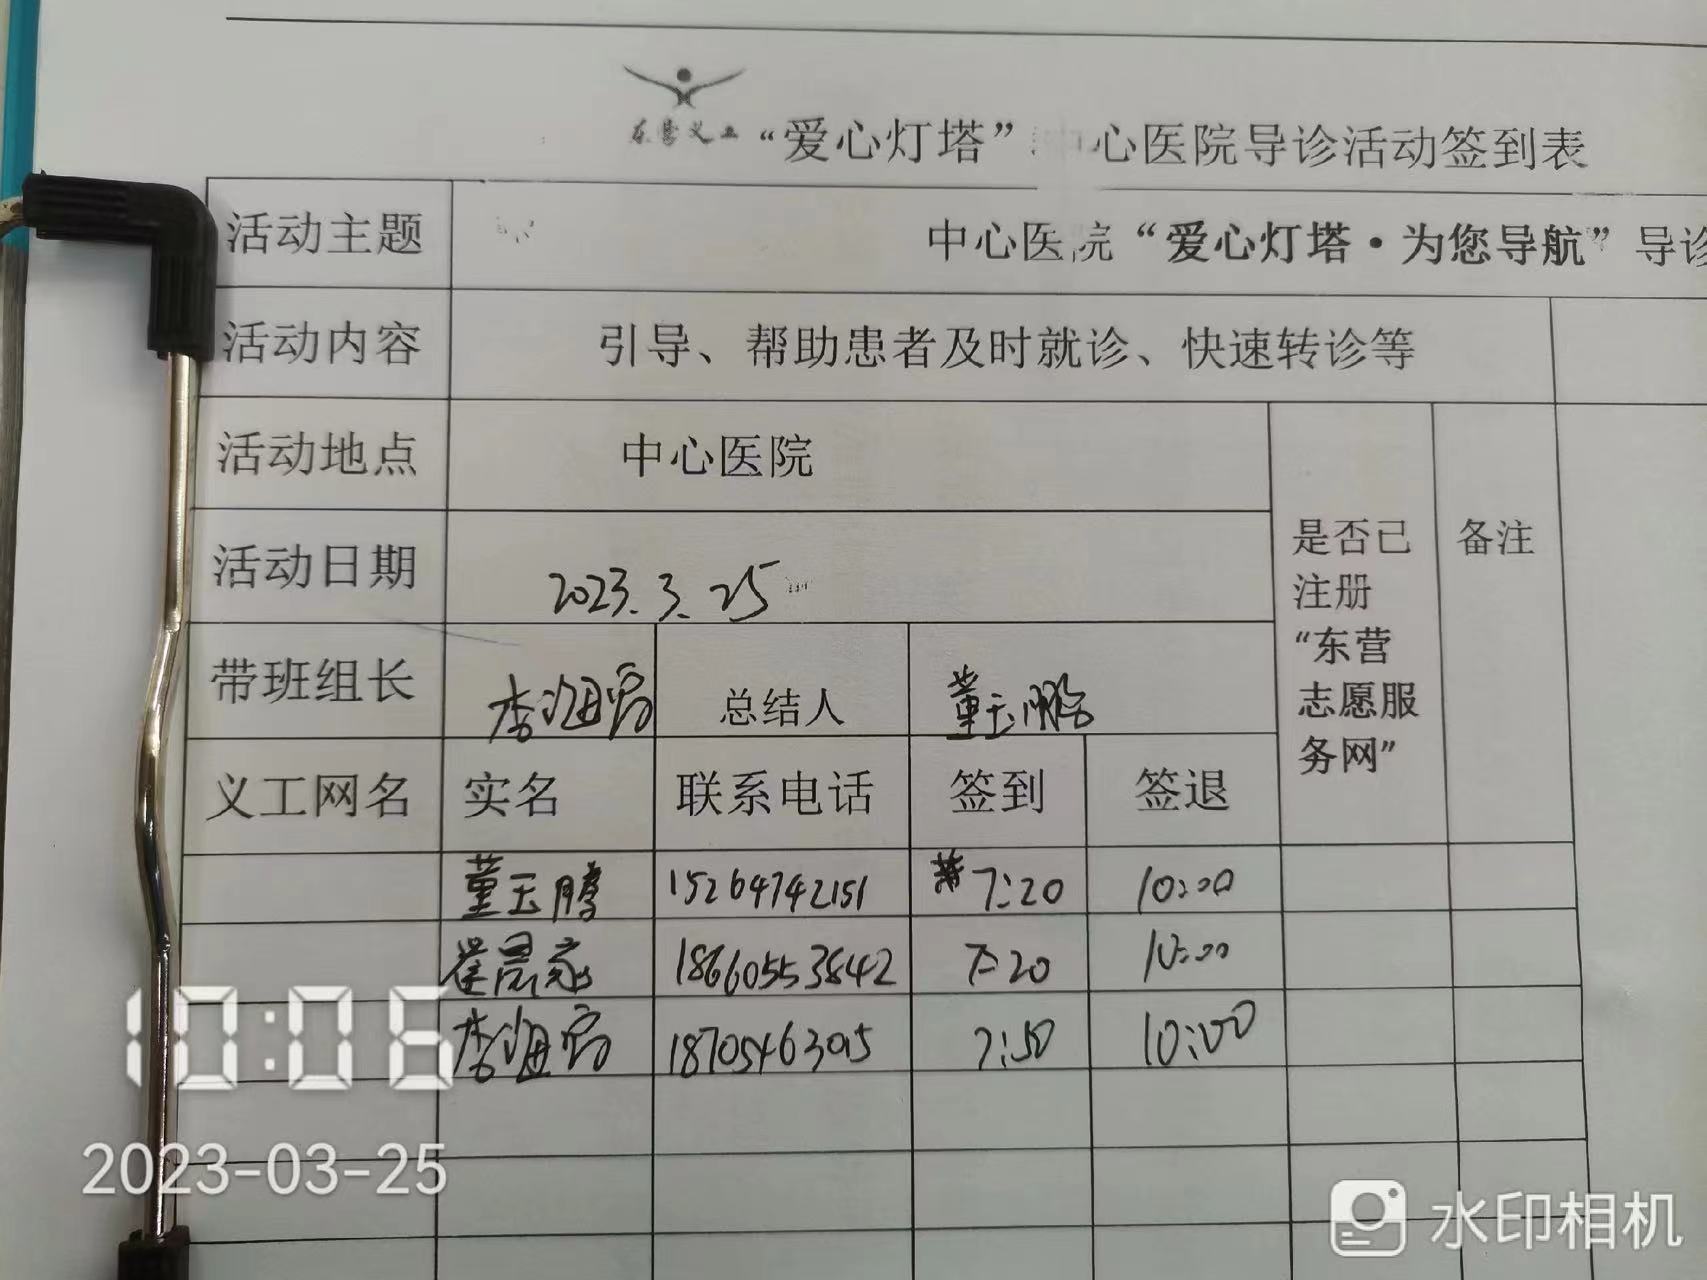 东营义工 “爱心灯塔” 中心医院导诊活动签到表
活动主题 中心医院“爱心灯塔·为您导航”导诊
活动内容 引导、帮助患者及时就诊、快速转诊等
活动地点 中心医院
活动日期 2023.3.25
是否已注册“东营志愿服务网”
备注
带班组长 李海 总结人 董玉鹏
义工网名 实名 联系电话 签到 签退
董玉腾 15264742151 7:20 10:00
崔晨 18660553842 7:20 10:00
李海 18705463015 7:50 10:00
10:06
2023-03-25
水印相机